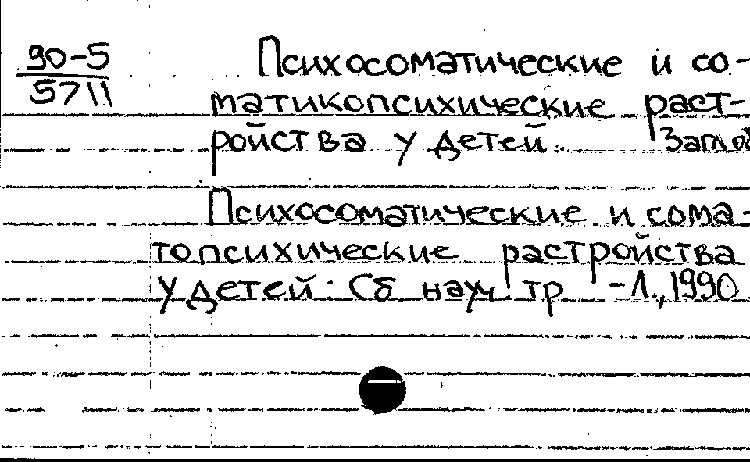 90-5
5711
Психосоматические и со-
матикопсихические раст-
ройства у детей.
Психосоматические и сома-
топсихические растройства
у детей: Сб науч тр - Л., 1990